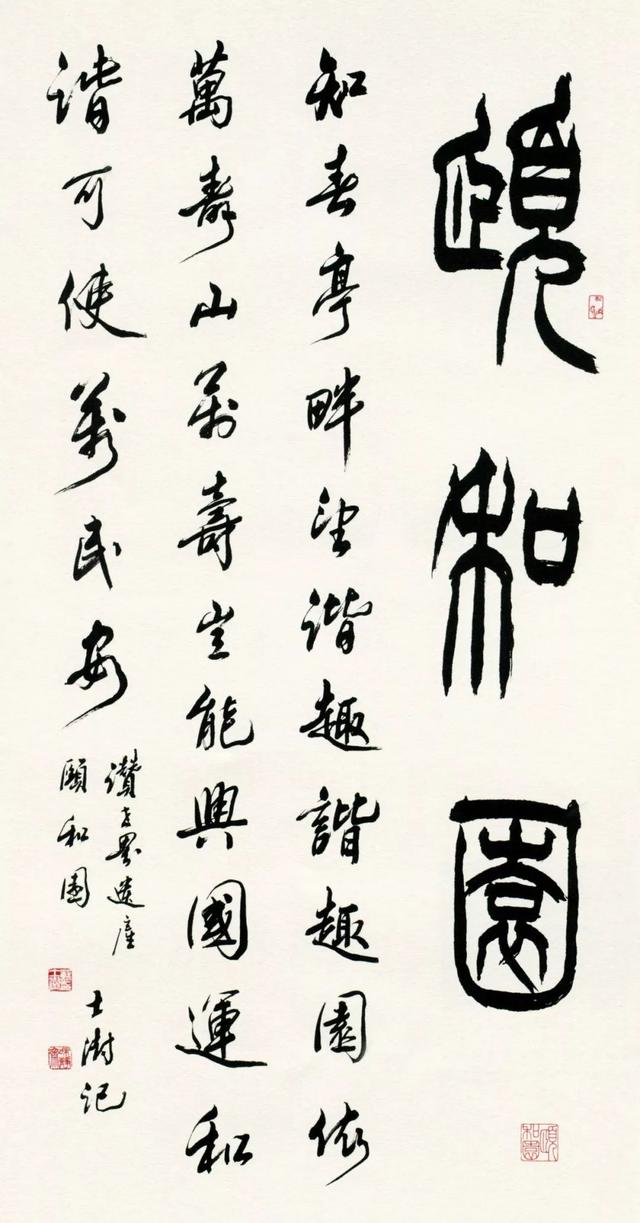 頤和園
知春亭畔望諧趣諧趣園依
萬壽山萬壽豈能興國運和
諧可使萬民安
讚世界遺產
頤和園
士澍記
頤和園